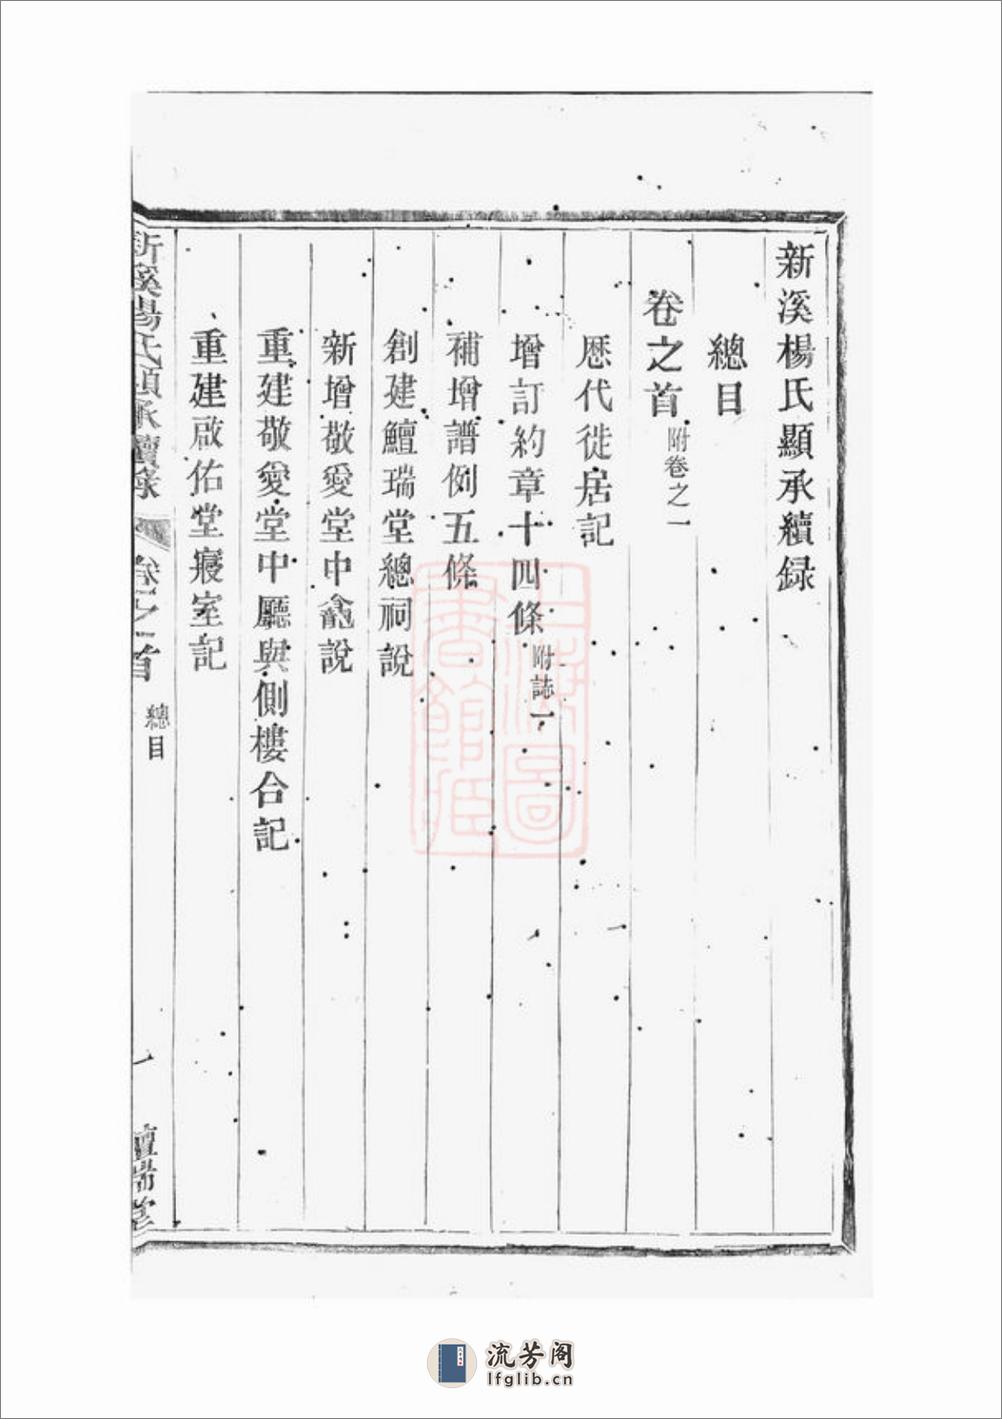 新溪楊氏顯承續録
總目
卷之首 附卷之一
歷代徙居記
增訂約章十四條 附誌一
補增譜例五條
創建鱣瑞堂總祠說
新增敬愛堂中龕說
重建敬愛堂中廳與側樓合記
重建啟佑堂寢室記
新溪楊氏顯承續錄 卷之首 總目 一 鱣瑞堂
上海圖書館藏
流芳阁
lfglib.cn